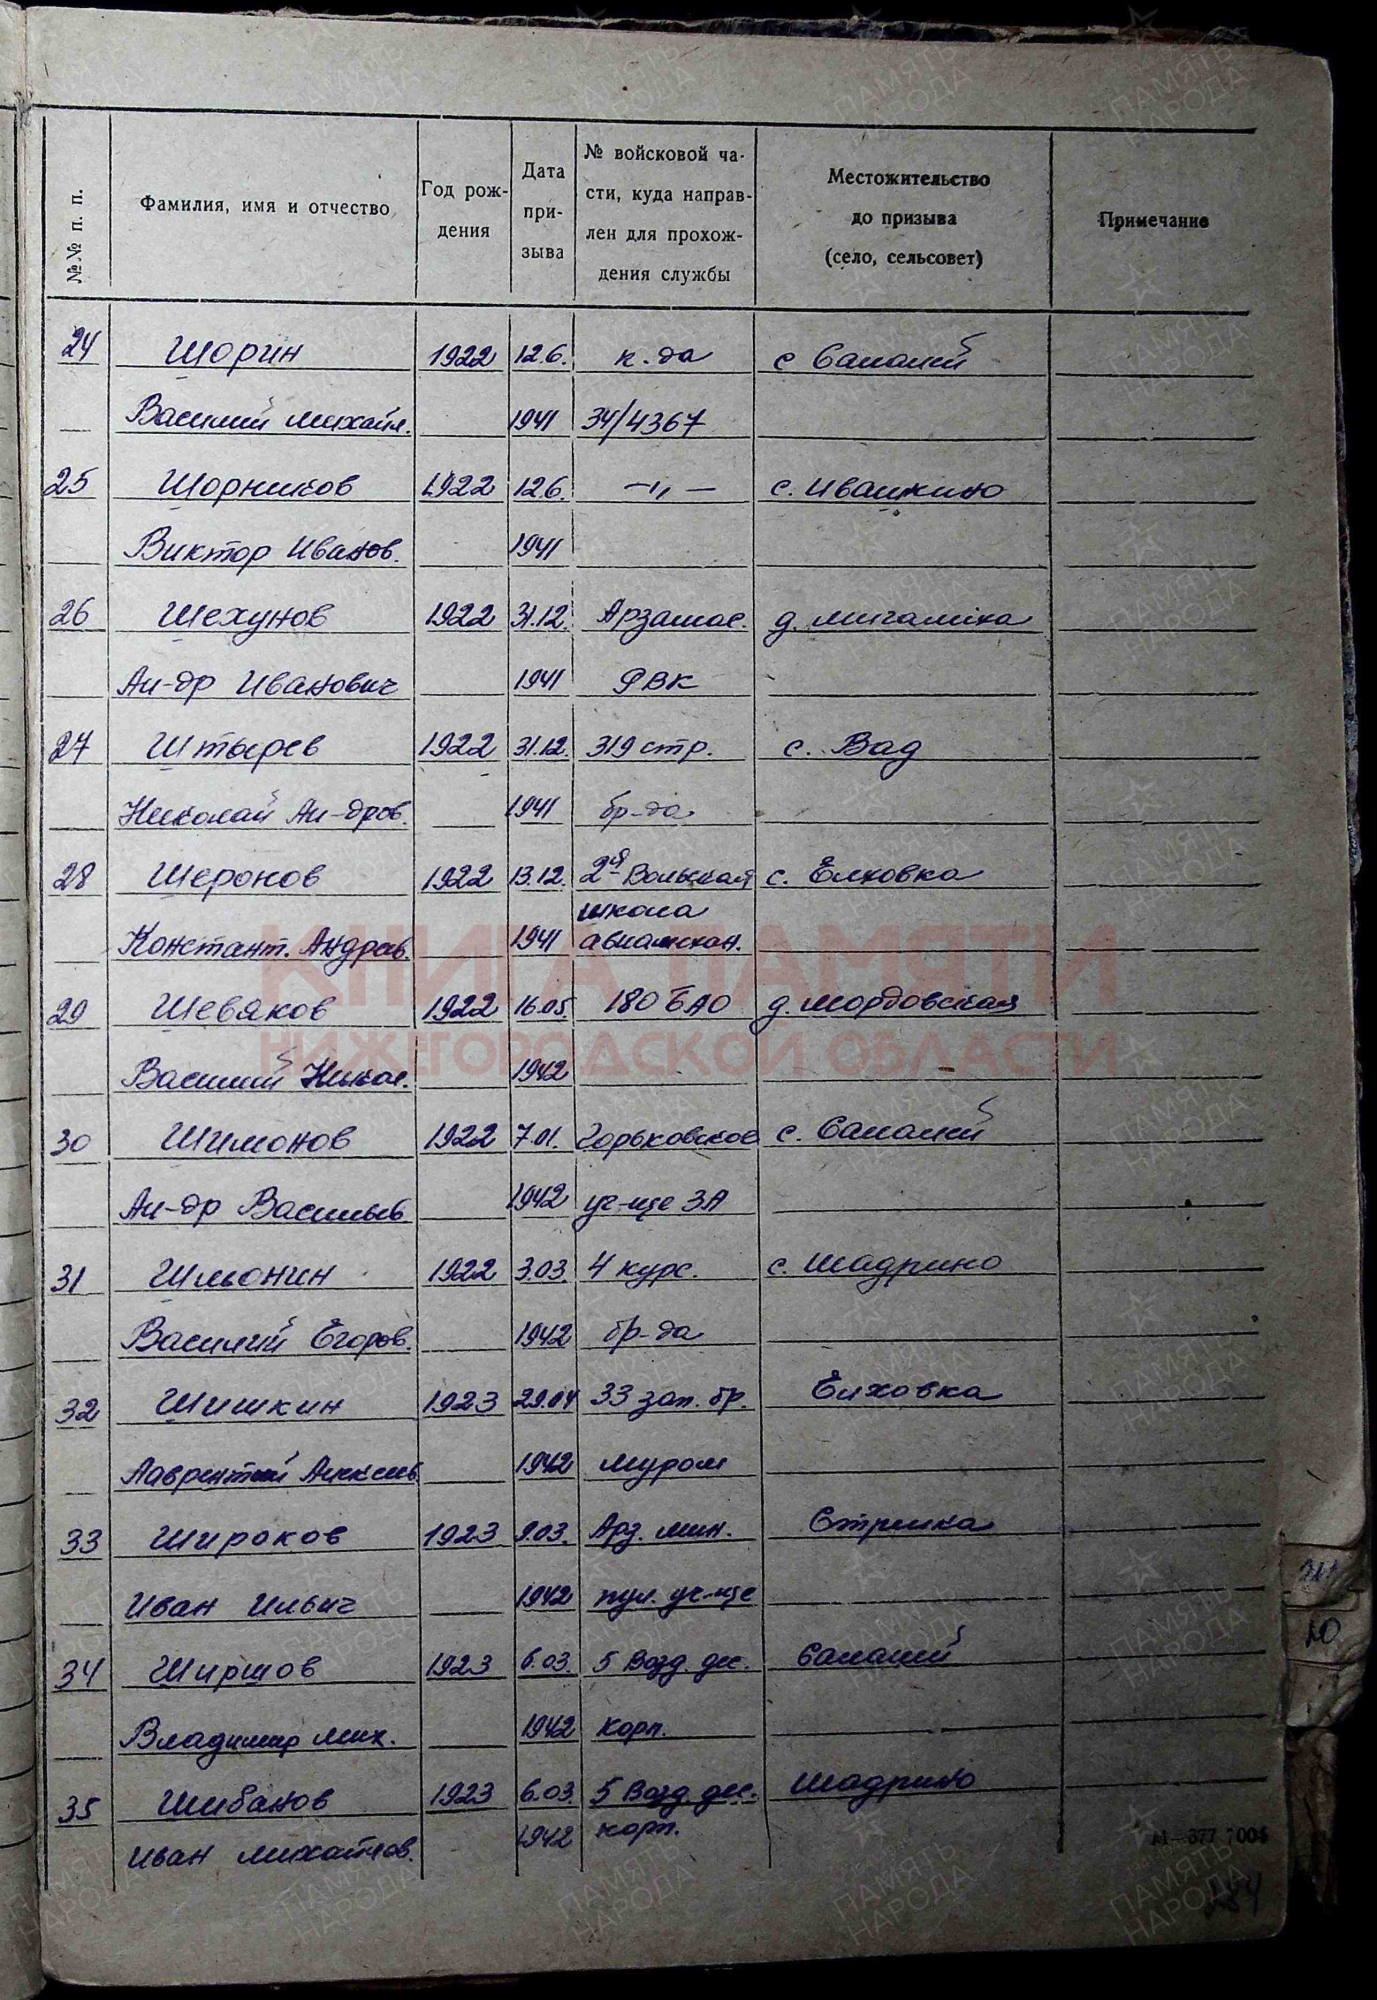 №№ п. п.
Фамилия, имя и отчество
Год рож-
дения
Дата
при-
зыва
№ войсковой ча-
сти, куда направ-
лен для прохож-
дения службы
Местожительство
до призыва
(село, сельсовет)
Примечание
24 Шорин 1922 12.6. к-да с Салалей
Василий Михайл. 1941 34/4367
25 Шорников 1922 12.6. —„— с. Ивашкино
Виктор Иванов. 1941
26 Шехунов 1922 31.12. Арзамас. д.
Ал-др Иванович 1941 РВК
27 Штырев 1922 31.12. 319 стр. с. Вад
Николай Ал-дров. 1941 бр-да
28 Шеронов 1922 13.12. 2я Вольская с. Елховка
школа
Констант. Андреев. 1941 авиамехан.
29 Шевяков 1922 16.05. 180 БАО д. Мордовская
Василий Никол. 1942
30 Шимонов 1922 7.01. Горьковское с. Салалей
Ал-др Васильев 1942 уч-ще ЗА
31 Шмонин 1922 3.03. 4 курс. с. Шадрино
Василий Егоров. 1942 бр-да
32 Шишкин 1923 29.04 33 зап. бр. Елховка
Лаврентий Алексеев 1942 Муром
33 Широков 1923 9.03. Арз. мин. Стрелка
Иван Ильич 1942 пул. уч-ще
34 Ширшов 1923 6.03. 5 Возд. дес. Салалей
Владимир Мих. 1942 корп.
35 Шибанов 1923 6.03. 5 Возд. дес. Шадрино
Иван Михайлов. 1942 корп.
КНИГА ПАМЯТИ
НИЖЕГОРОДСКОЙ ОБЛАСТИ
ПАМЯТЬ
НАРОДА
Ю